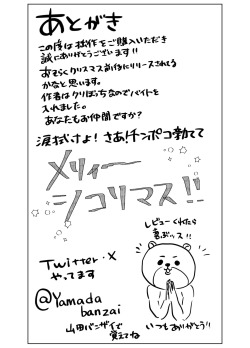 あとがき
この度は拙作をご購入いただき
誠にありがとうございます!!
おそらくクリスマス前後にリリースされてる
かなと思います。
作者はクリぼっちなのでバイトを
入れました。
あなたもお仲間ですか？
涙拭けよ！さあ！チンポコ勃てて
メリィー
シコリマス!!
Twitter・X
やってます
@Yamada
banzai
山田バンザイで
覚えてね
レビューくれたら
喜ぶッス!!
いつもありがとう!!